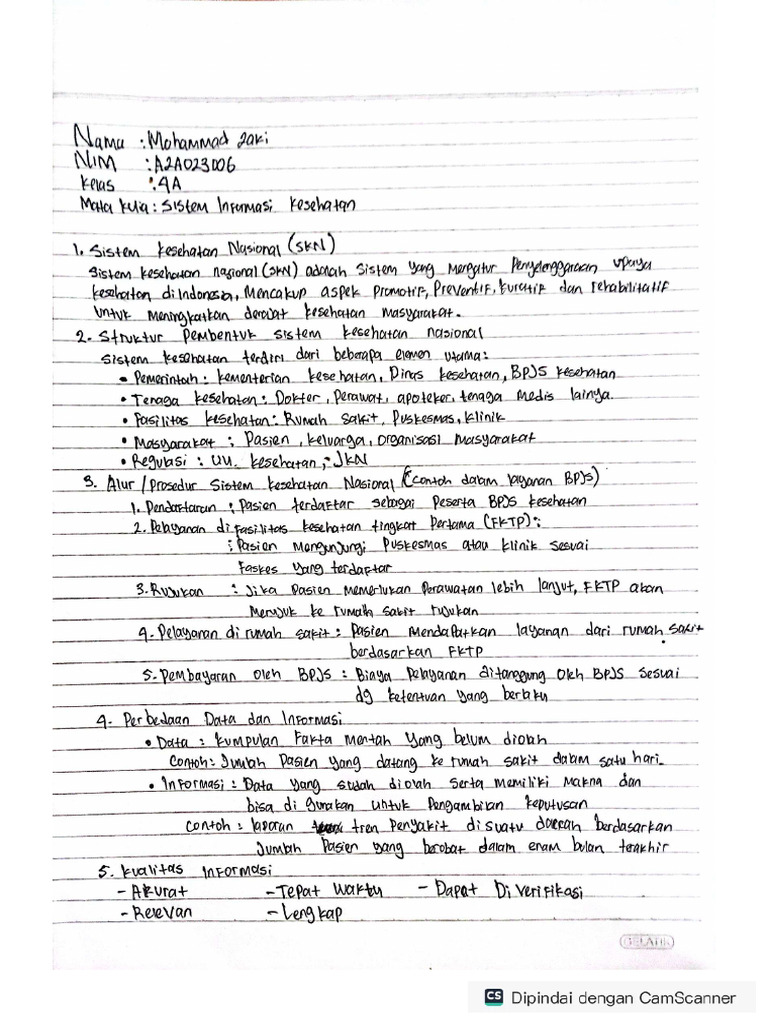 Nama : Mohammad zaki
NIM : A2A023006
Kelas : 4A
Mata Kulia : Sistem Informasi Kesehatan
1. Sistem Kesehatan Nasional (SKN)
Sistem kesehatan nasional (SKN) adalah sistem yang mengatur Penyelenggaraan upaya
kesehatan di Indonesia, Mencakup aspek promotif, Preventif, kuratif dan rehabilitatif
untuk meningkatkan derajat kesehatan masyarakat.
2. Struktur Pembentuk sistem kesehatan nasional
sistem kesehatan terdiri dari beberapa elemen utama:
• Pemerintah : kementerian kesehatan, Dinas kesehatan, BPJS kesehatan
• Tenaga kesehatan : Dokter, Perawat, apoteker, tenaga medis lainya.
• Fasilitas kesehatan : Rumah sakit, Puskesmas, klinik
• Masyarakat : Pasien, keluarga, organisasi masyarakat
• Regulasi : UU. kesehatan, JKN
3. Alur / Prosedur Sistem kesehatan Nasional (contoh dalam layanan BPJS)
1. Pendaftaran : Pasien terdaftar sebagai Peserta BPJS kesehatan
2. Pelayanan di fasilitas kesehatan tingkat Pertama (FKTP) :
: Pasien Mengunjungi Puskesmas atau klinik sesuai
Faskes yang terdaftar
3. Rujukan : Jika Pasien memerlukan Perawatan lebih lanjut, FKTP akan
Merujuk ke rumah sakit rujukan
4. Pelayanan di rumah sakit : Pasien Mendapatkan layanan dari rumah sakit
berdasarkan FKTP
5. Pembayaran oleh BPJS : Biaya Pelayanan ditanggung oleh BPJS sesuai
dg ketentuan yang berlaku
4. Perbedaan Data dan Informasi
• Data : kumpulan Fakta mentah yang belum diolah
Contoh : Jumlah Pasien yang datang ke rumah sakit dalam satu hari.
• Informasi : Data yang sudah diolah serta memiliki makna dan
bisa di gunakan untuk Pengambilan keputusan
Contoh : laporan tren Penyakit di suatu daerah berdasarkan
Jumlah Pasien yang berobat dalam enam bulan terakhir
5. kualitas Informasi
- Akurat - Tepat Waktu - Dapat Di Verifikasi
- Relevan - Lengkap
GELATIK
CS Dipindai dengan CamScanner